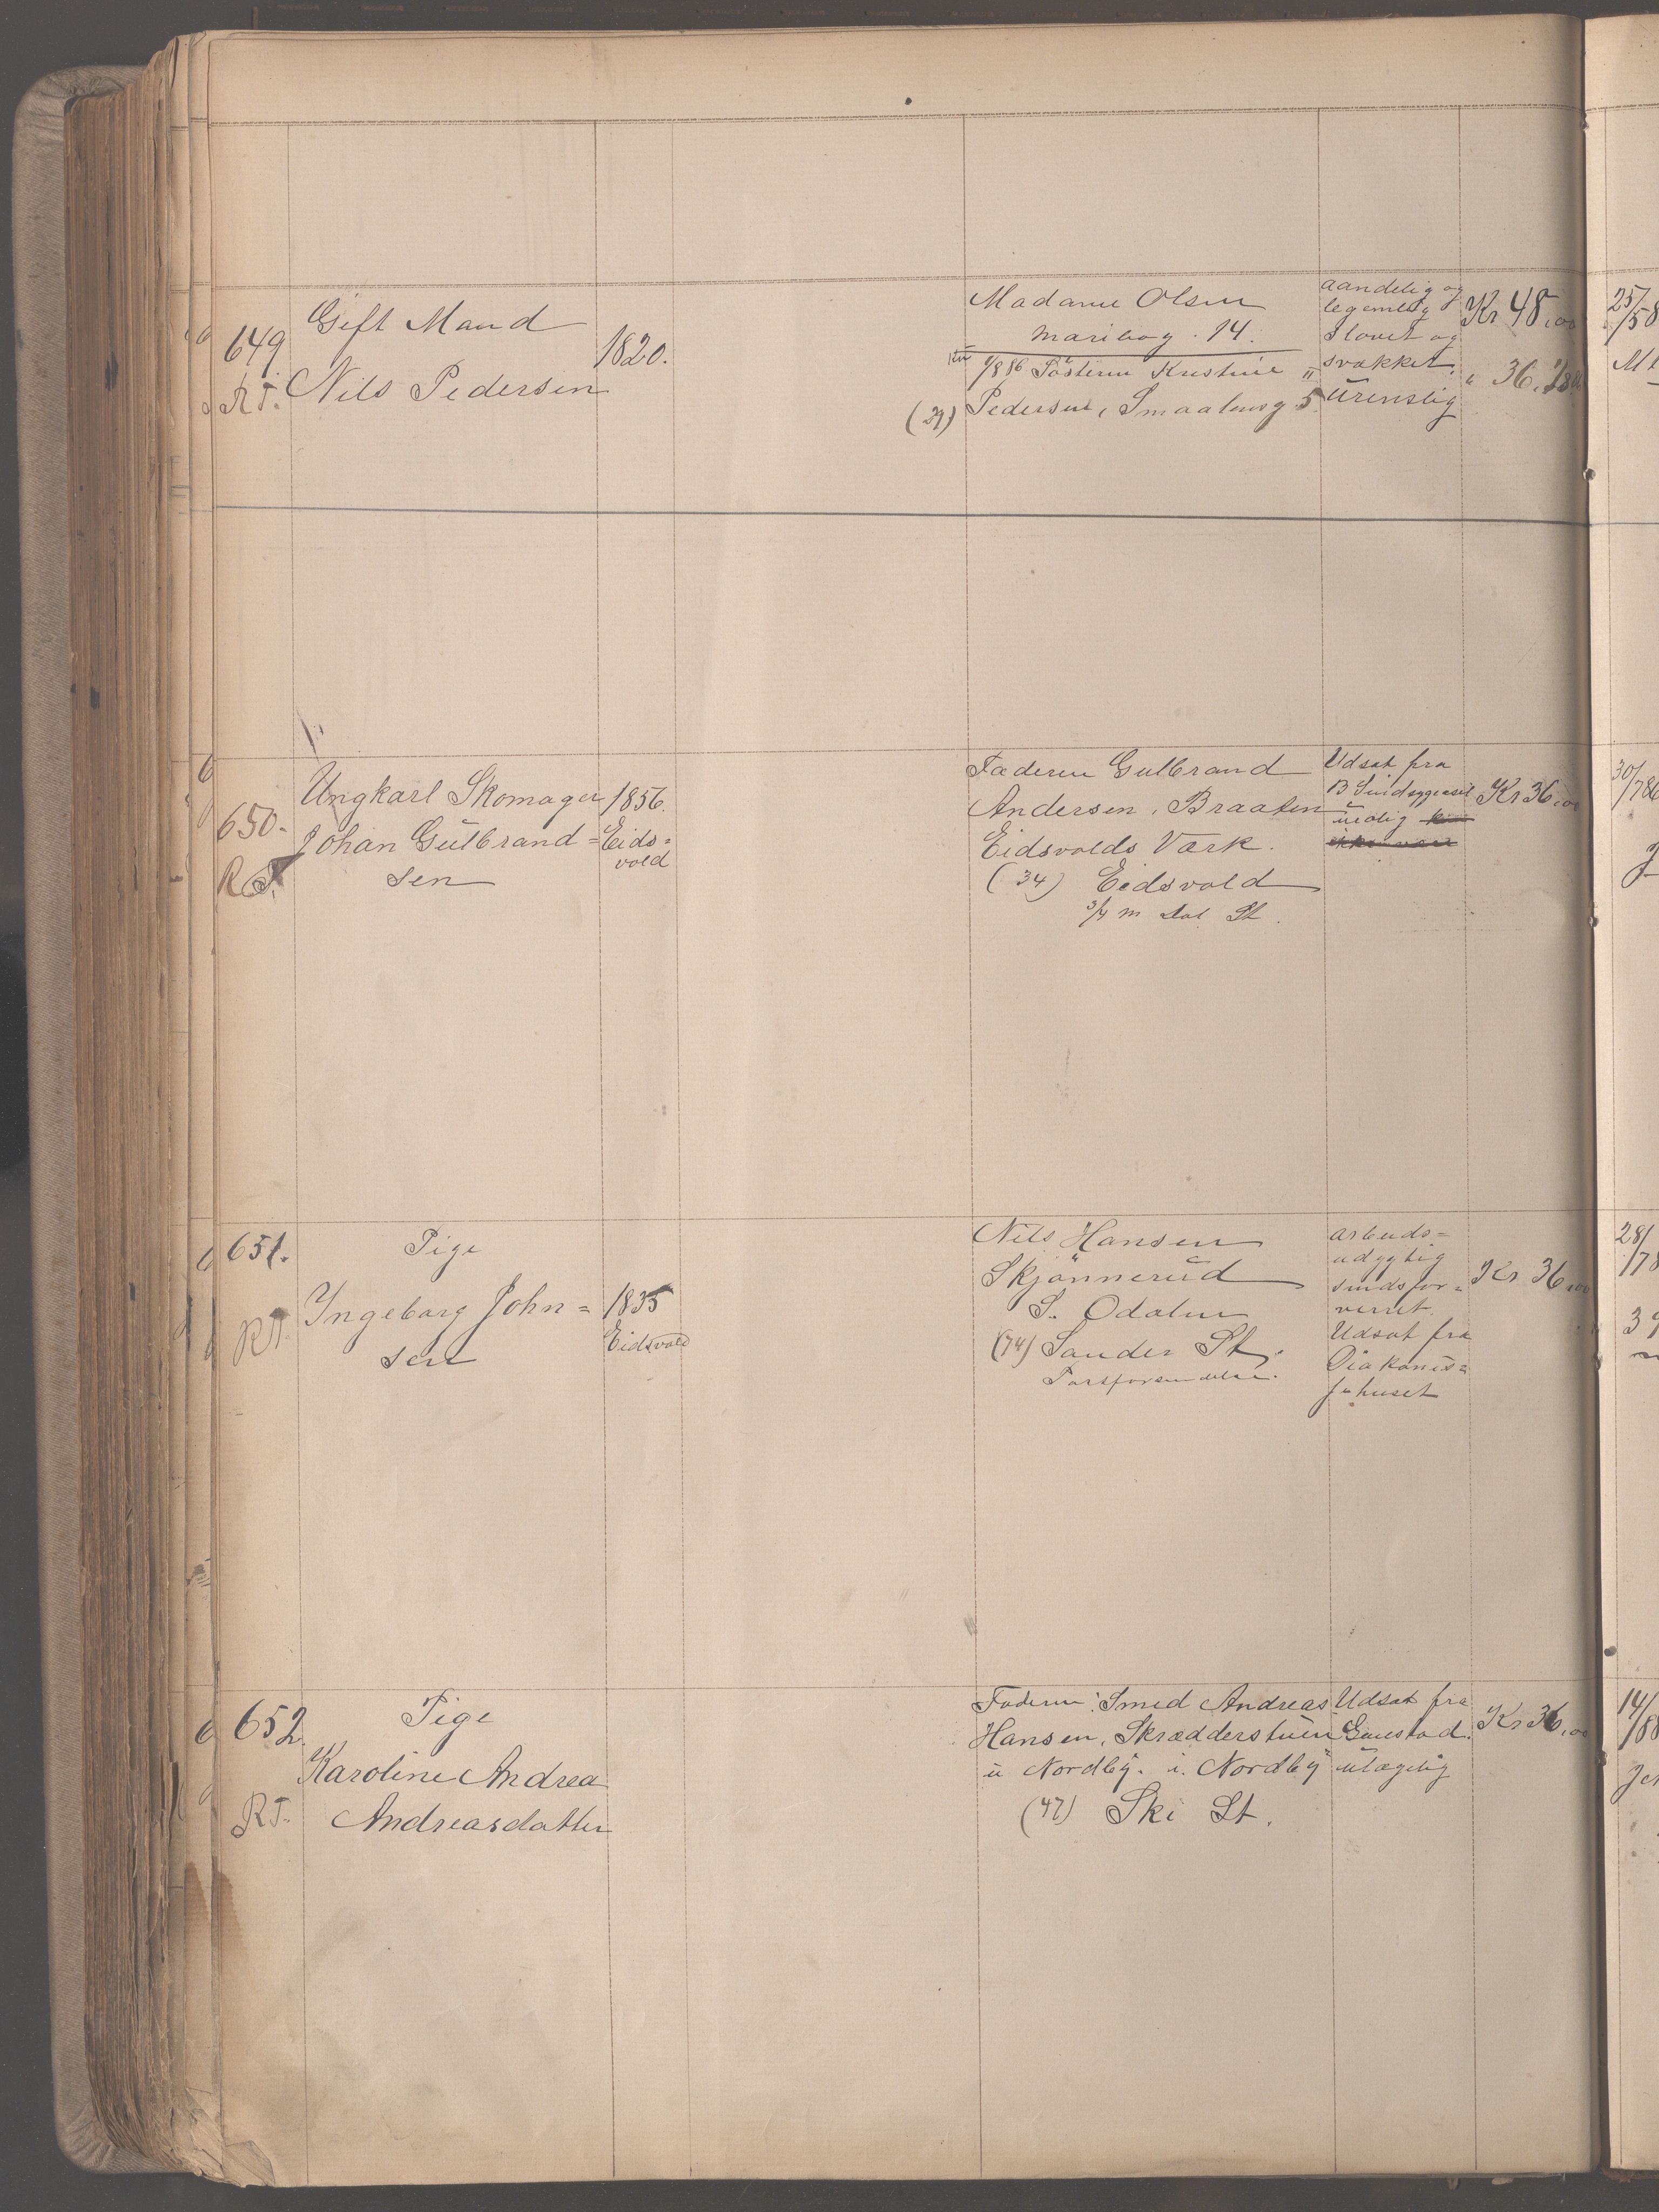 649
R T.
Gift Mand
Nils Pedersen
1820.
Madame Olsen
Maribog. 14.
1/8 86 Søsteren Kristine
(29) Pedersen, Smaalensg 5.
aandelig og
legemlig
sløvet og
svækket,
urenslig
Kr 48,00
" 36. 1/8
25/
/58
650.
R T.
Ungkarl Skomager
Johan Gulbrand=
sen
1856.
Eids=
vold
Faderen Gulbrand
Andersen, Braaten
Eidsvolds Værk.
(34) Eidsvold
3/4 m Dal St.
Udsat fra
urolig
Kr 36,00
30/
/786
651.
RT.
Pige
Ingeborg John=
sen
1835
Eidsvold
Nils Hansen
Skjønnerud
S. Odalen
(74) Sander St.
arbeids=
udygtig
sindsfor=
virret.
Udsat fra
Diakonis=
sehuset
Kr. 36,00
28/
/78
652.
RT.
Pige
Karoline Andrea
Andreasdatter
Faderen: Smed Andreas
Hansen, Skrædderstuen
u Nordby. i. Nordby
(47) Ski St.
Udsat fra
Gaustad.
ulægelig
Kr 36,00
14/
/88